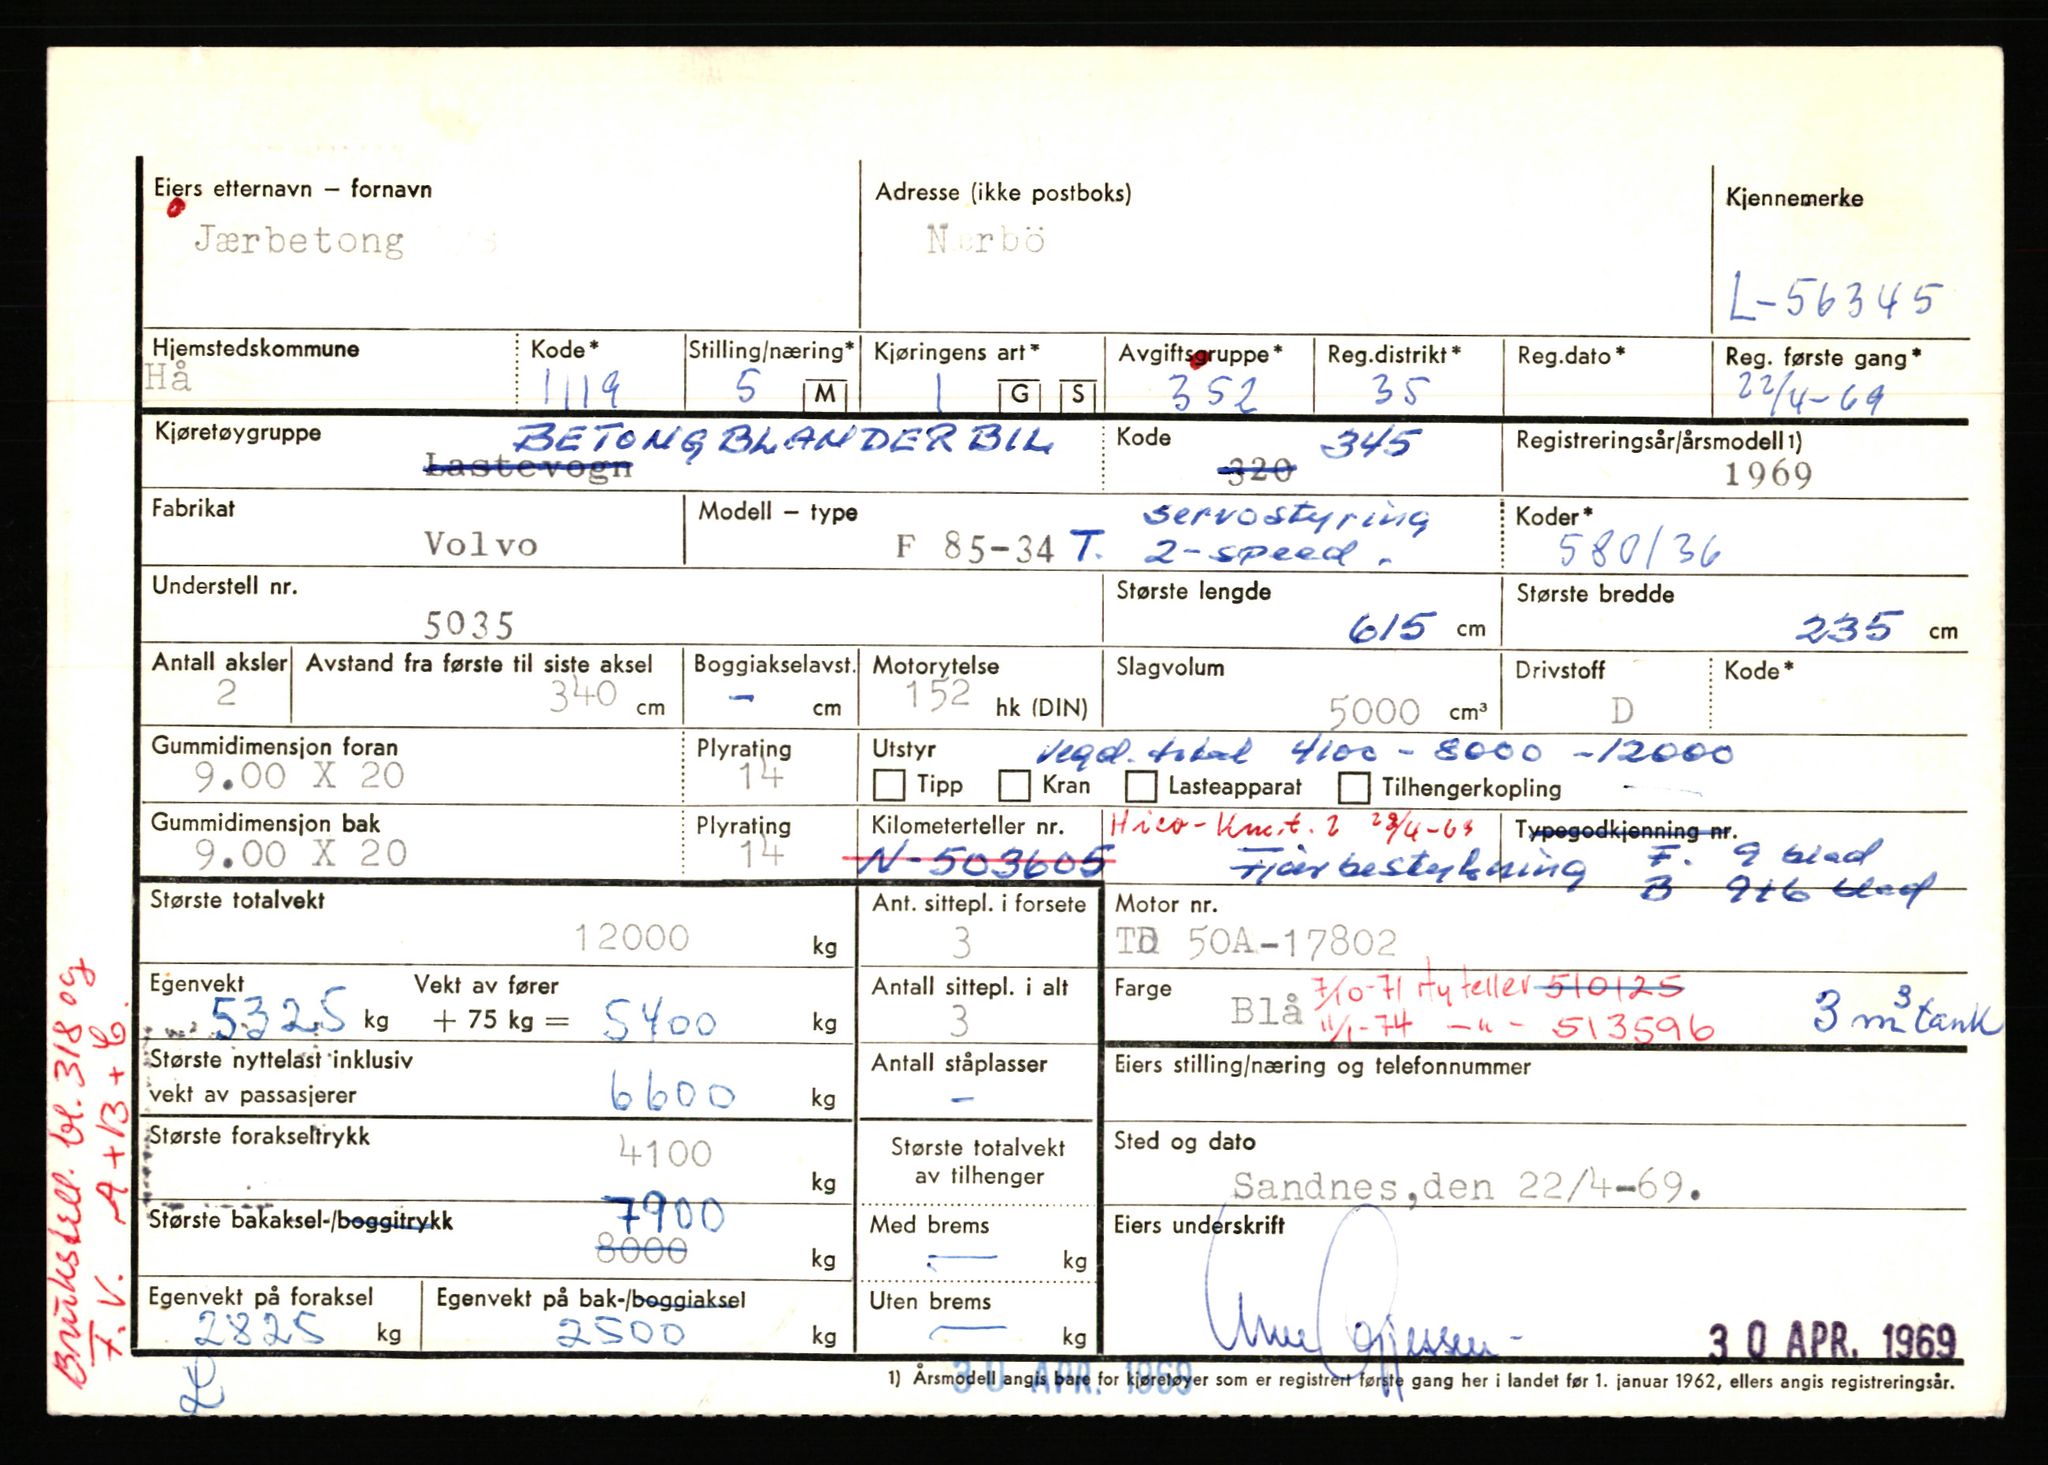 Eiers etternavn – fornavn
Jærbetong
Adresse (ikke postboks)
Nærbö
Kjennemerke
L-56345
Hjemstedskommune
Hå
Kode*
1119
Stilling/næring*
5 M
Kjøringens art*
1 G S
Avgiftsgruppe*
352
Reg.distrikt*
35
Reg.dato*
Reg. første gang*
22/4-69
Kjøretøygruppe
BETONGBLANDERBIL
Lastevogn
Kode
345
320
Registreringsår/årsmodell1)
1969
Fabrikat
Volvo
Modell – type
F 85-34 T.
servostyring
2-speed.
Koder*
580/36
Understell nr.
5035
Største lengde
615 cm
Største bredde
235 cm
Antall aksler
2
Avstand fra første til siste aksel
340 cm
Boggiakselavst.
– cm
Motorytelse
152 hk (DIN)
Slagvolum
5000 cm³
Drivstoff
D
Kode*
Gummidimensjon foran
9.00 X 20
Plyrating
14
Utstyr
vegd. total 4100-8000-12000
Tipp Kran Lasteapparat Tilhengerkopling
Gummidimensjon bak
9.00 X 20
Plyrating
14
Kilometerteller nr.
N-503605
Typegodkjenning nr.
Fjærbestykning F. 9 blad
B 9+6 blad
Største totalvekt
12000 kg
Ant. sittepl. i forsete
3
Motor nr.
TD 50A-17802
Egenvekt
5325 kg
Vekt av fører
+ 75 kg = 5400 kg
Antall sittepl. i alt
3
Farge
Blå
7/10-71 Ny teller 510125
11/1-74 -"- 513596
3 m³ tank
Største nyttelast inklusiv
vekt av passasjerer
6600 kg
Antall ståplasser
–
Eiers stilling/næring og telefonnummer
Største forakseltrykk
4100 kg
Største totalvekt
av tilhenger
Sted og dato
Sandnes,den 22/4-69.
Største bakaksel-/boggitrykk
7900
8000 kg
Med brems
— kg
Eiers underskrift
Egenvekt på foraksel
2825 kg
Egenvekt på bak-/boggiaksel
2500 kg
Uten brems
— kg
30 APR. 1969
30 APR. 1969
1) Årsmodell angis bare for kjøretøyer som er registrert første gang her i landet før 1. januar 1962, ellers angis registreringsår.
Bruksdell bl. 318 og
F.V. A+B+C.